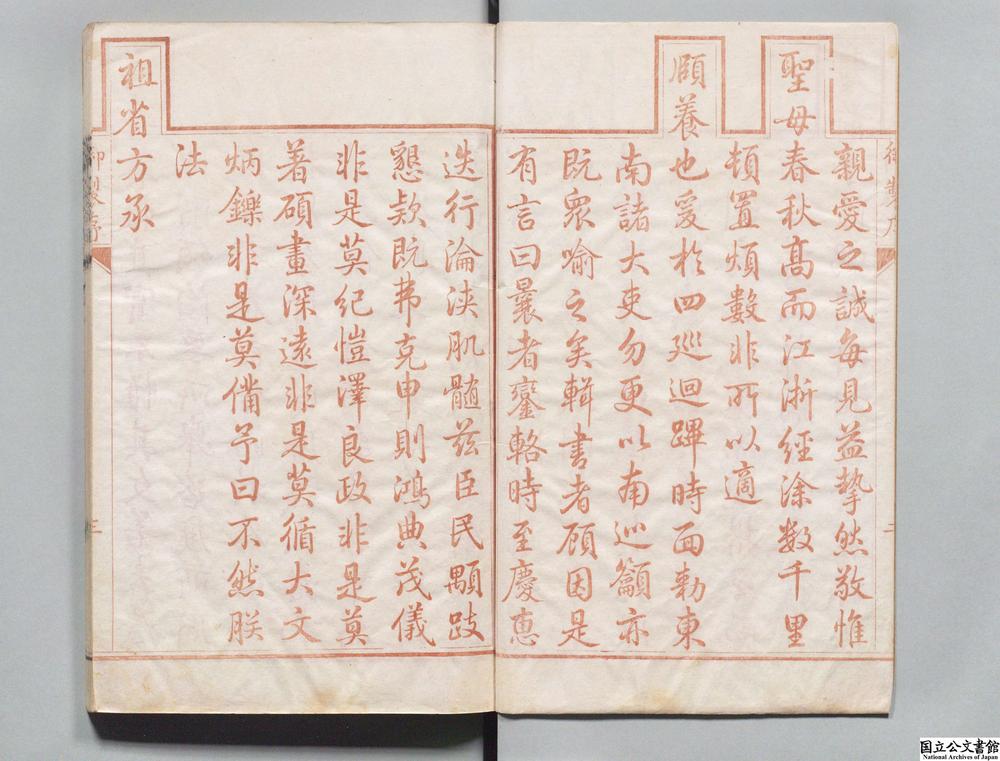 親愛之誠每見益摯然敬惟
聖母春秋高而江浙經涂數千里
頓置煩數非所以適
頤養也爰於四廵迴蹕時面勅東
南諸大吏勿更以南巡籲亦
既衆喻之矣輯書者顧因是
有言曰曩者鑾輅時至慶惠
迭行淪浹肌髓茲臣民顒跂
懇欵既弗克申則鴻典茂儀
非是莫紀愷澤良政非是莫
著碩畫深遠非是莫循大文
炳鑠非是莫備予曰不然朕
法
祖省方承
御製序
二
御製序
三
国立公文書館
National Archives of Japan